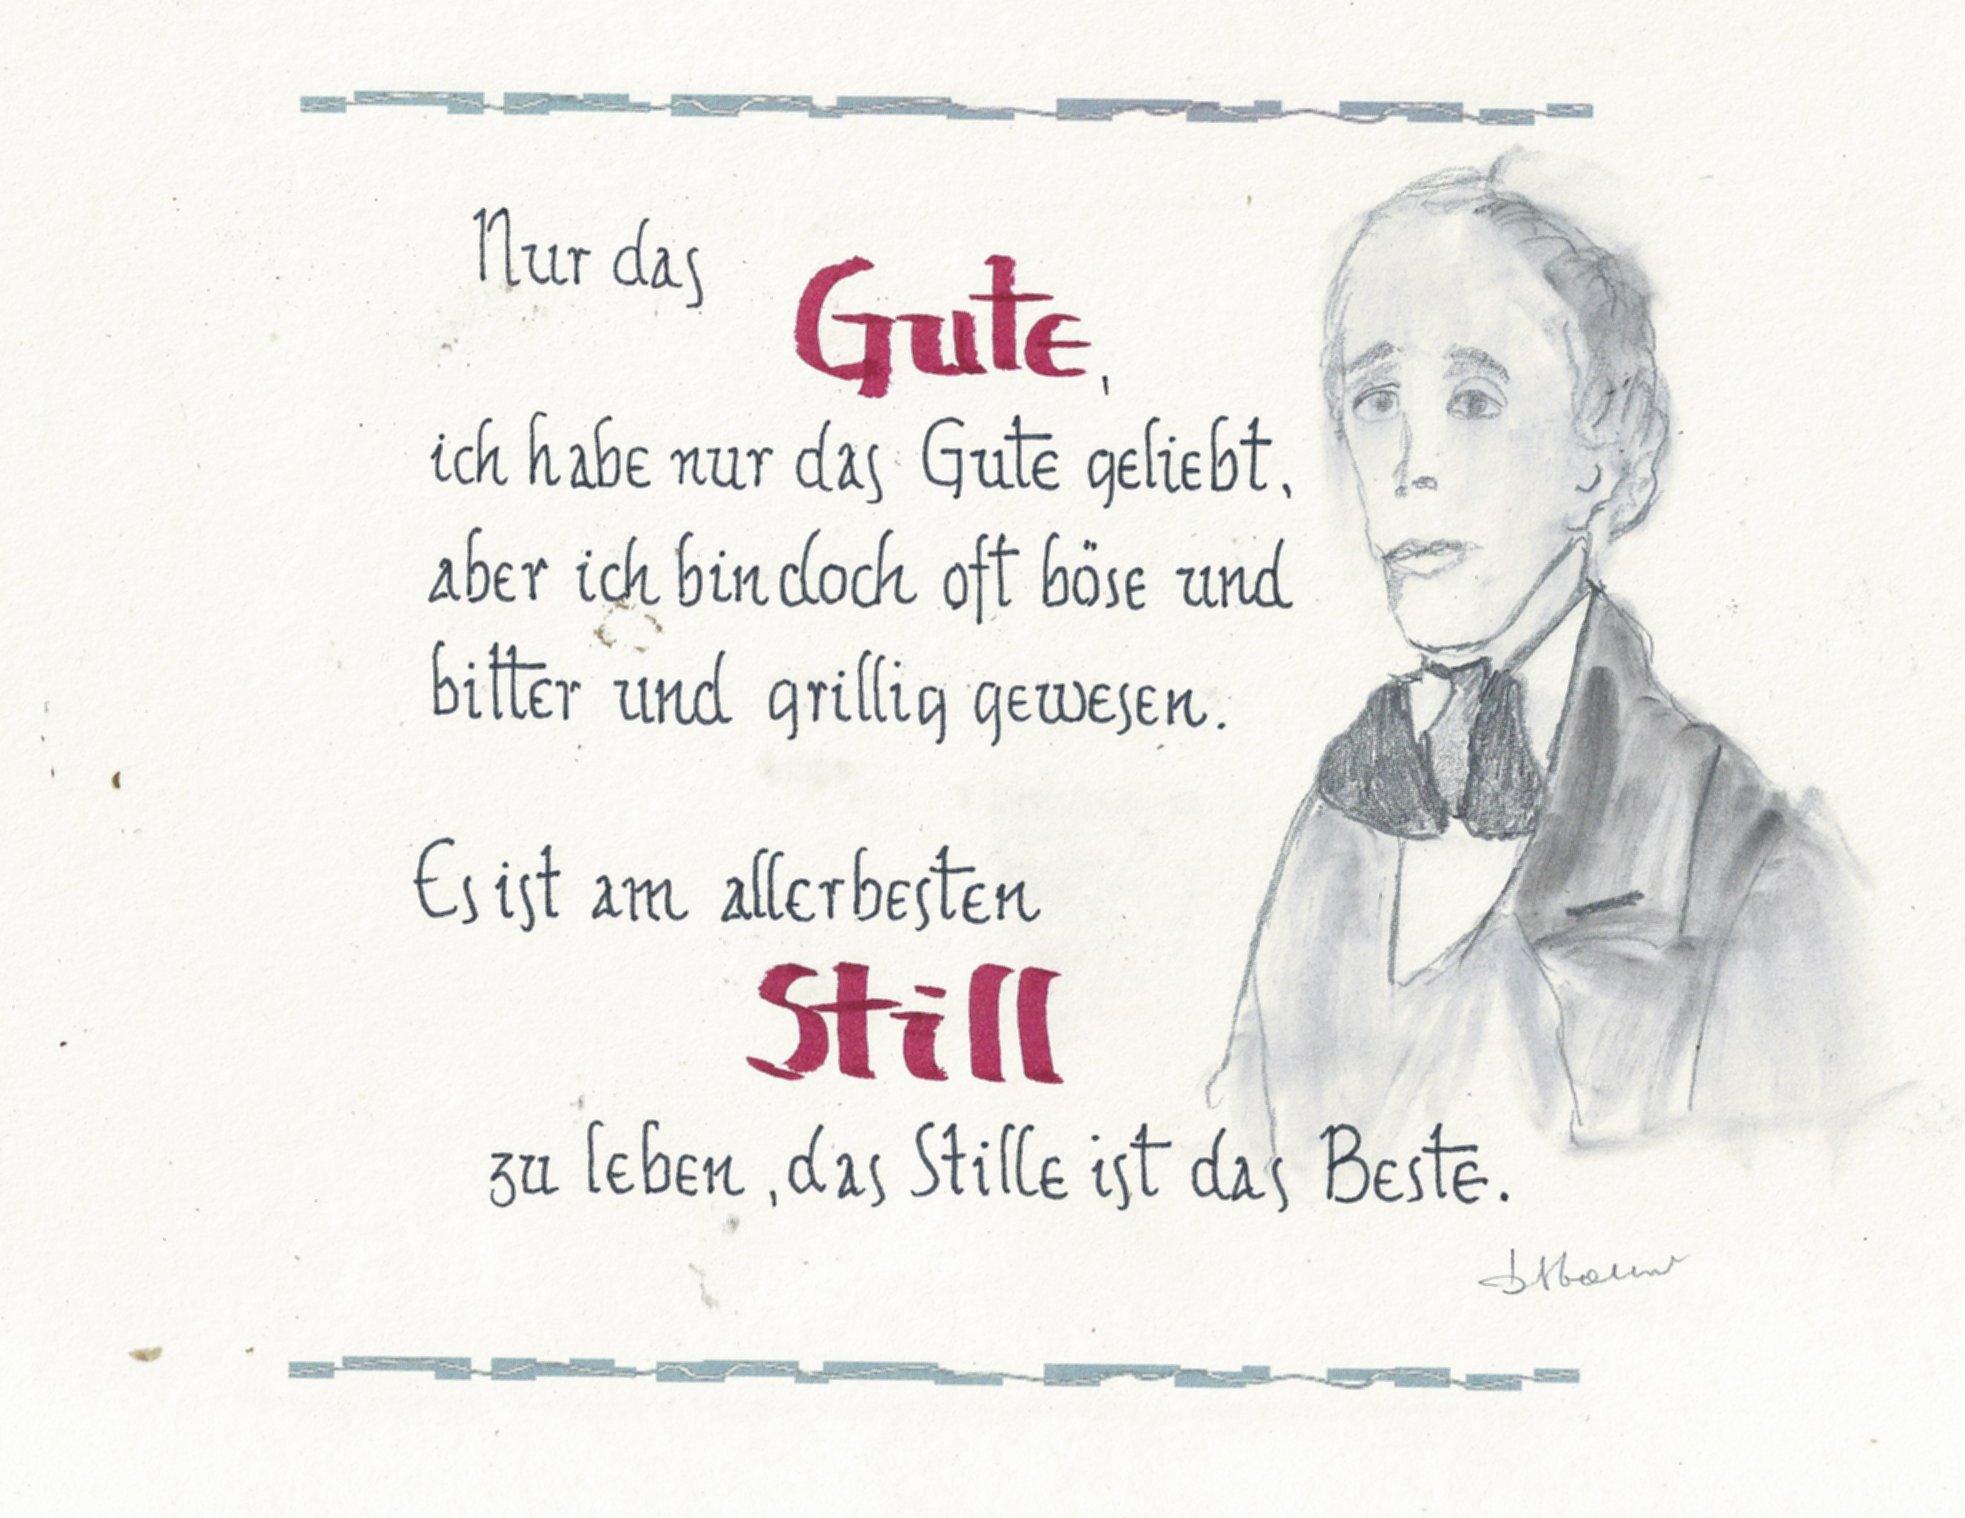 Nur das
Gute,
ich habe nur das Gute geliebt,
aber ich bin doch oft böse und
bitter und grillig gewesen.
Es ist am allerbesten
Still
zu leben, das Stille ist das Beste.